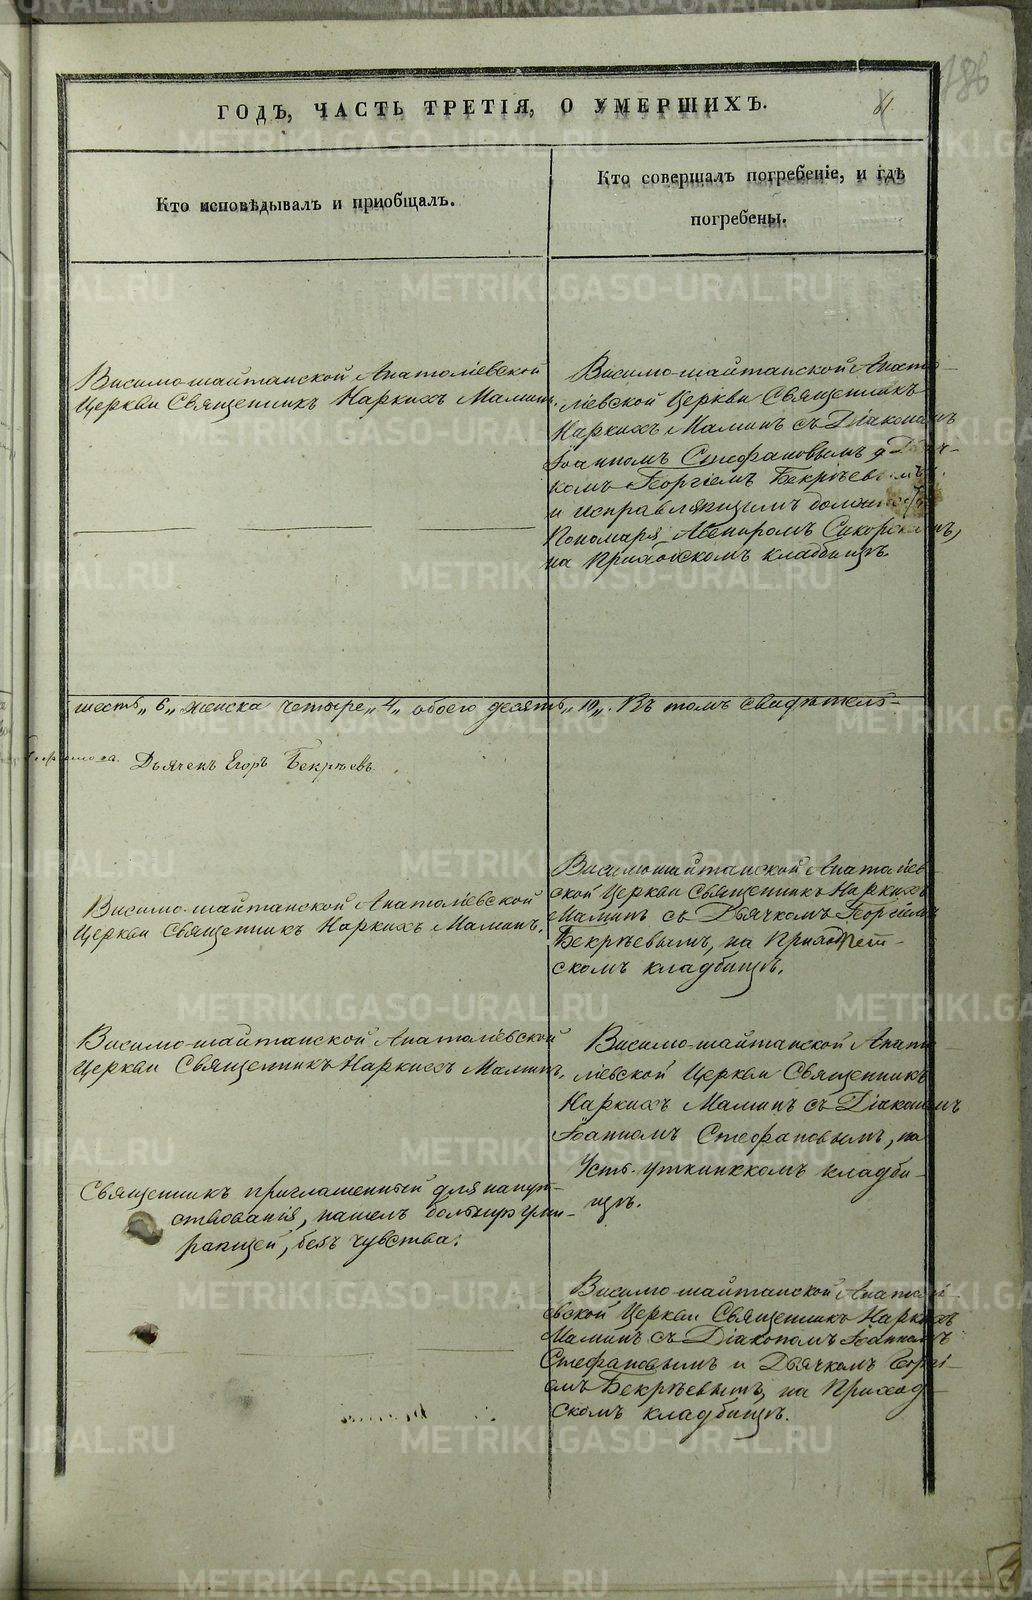 186
ГОДЪ, ЧАСТЬ ТРЕТІЯ, О УМЕРШИХЪ.
Кто исповѣдывалъ и приобщалъ.
Кто совершалъ погребеніе, и гдѣ
погребены.
Висимо-шайтанской Анатоліевской
Церкви Священникъ Наркихъ Маминъ.
Висимо-шайтанской Анато-
ліевской Церкви Священникъ
Наркихъ Маминъ съ Діакономъ
Іоанномъ Стефановымъ, Дьяч-
комъ Георгіемъ Бекрѣевымъ
и исправляющимъ должность
Пономаря Авениромъ Сикорскимъ,
на Приходскомъ кладбищѣ.
шесть „6„ женска четыре „4„ обоего десять „10„. Въ томъ свидѣтель-
Дьячекъ Егоръ Бекрѣевъ.
Висимо-шайтанской Анатоліевской
Церкви Священникъ Наркихъ Маминъ.
Висимошайтанской Анатоліев-
ской Церкви Священникъ Наркихъ
Маминъ съ Дьячкомъ Георгіемъ
Бекрѣевымъ, на
скомъ кладбищѣ.
Висимо-шайтанской Анатоліевской
Церкви Священникъ Наркихъ Маминъ.
Висимо-шайтанской Анато-
ліевской Церкви Священникъ
Наркихъ Маминъ съ Діакономъ
Іоанномъ Стефановымъ, на
Усть-уткинскомъ кладби-
щѣ.
Священникъ приглашенный для напут-
ствованія, нашелъ больную уми-
рающей, безъ чувства.
Висимо-шайтанской Анатолі-
евской Церкви Священникъ Наркихъ
Маминъ съ Діакономъ Іоанномъ
Стефановымъ и Дьячкомъ Георгі-
емъ Бекрѣевымъ, на Приход-
скомъ кладбищѣ.
METRIKI.GASO-URAL.RU